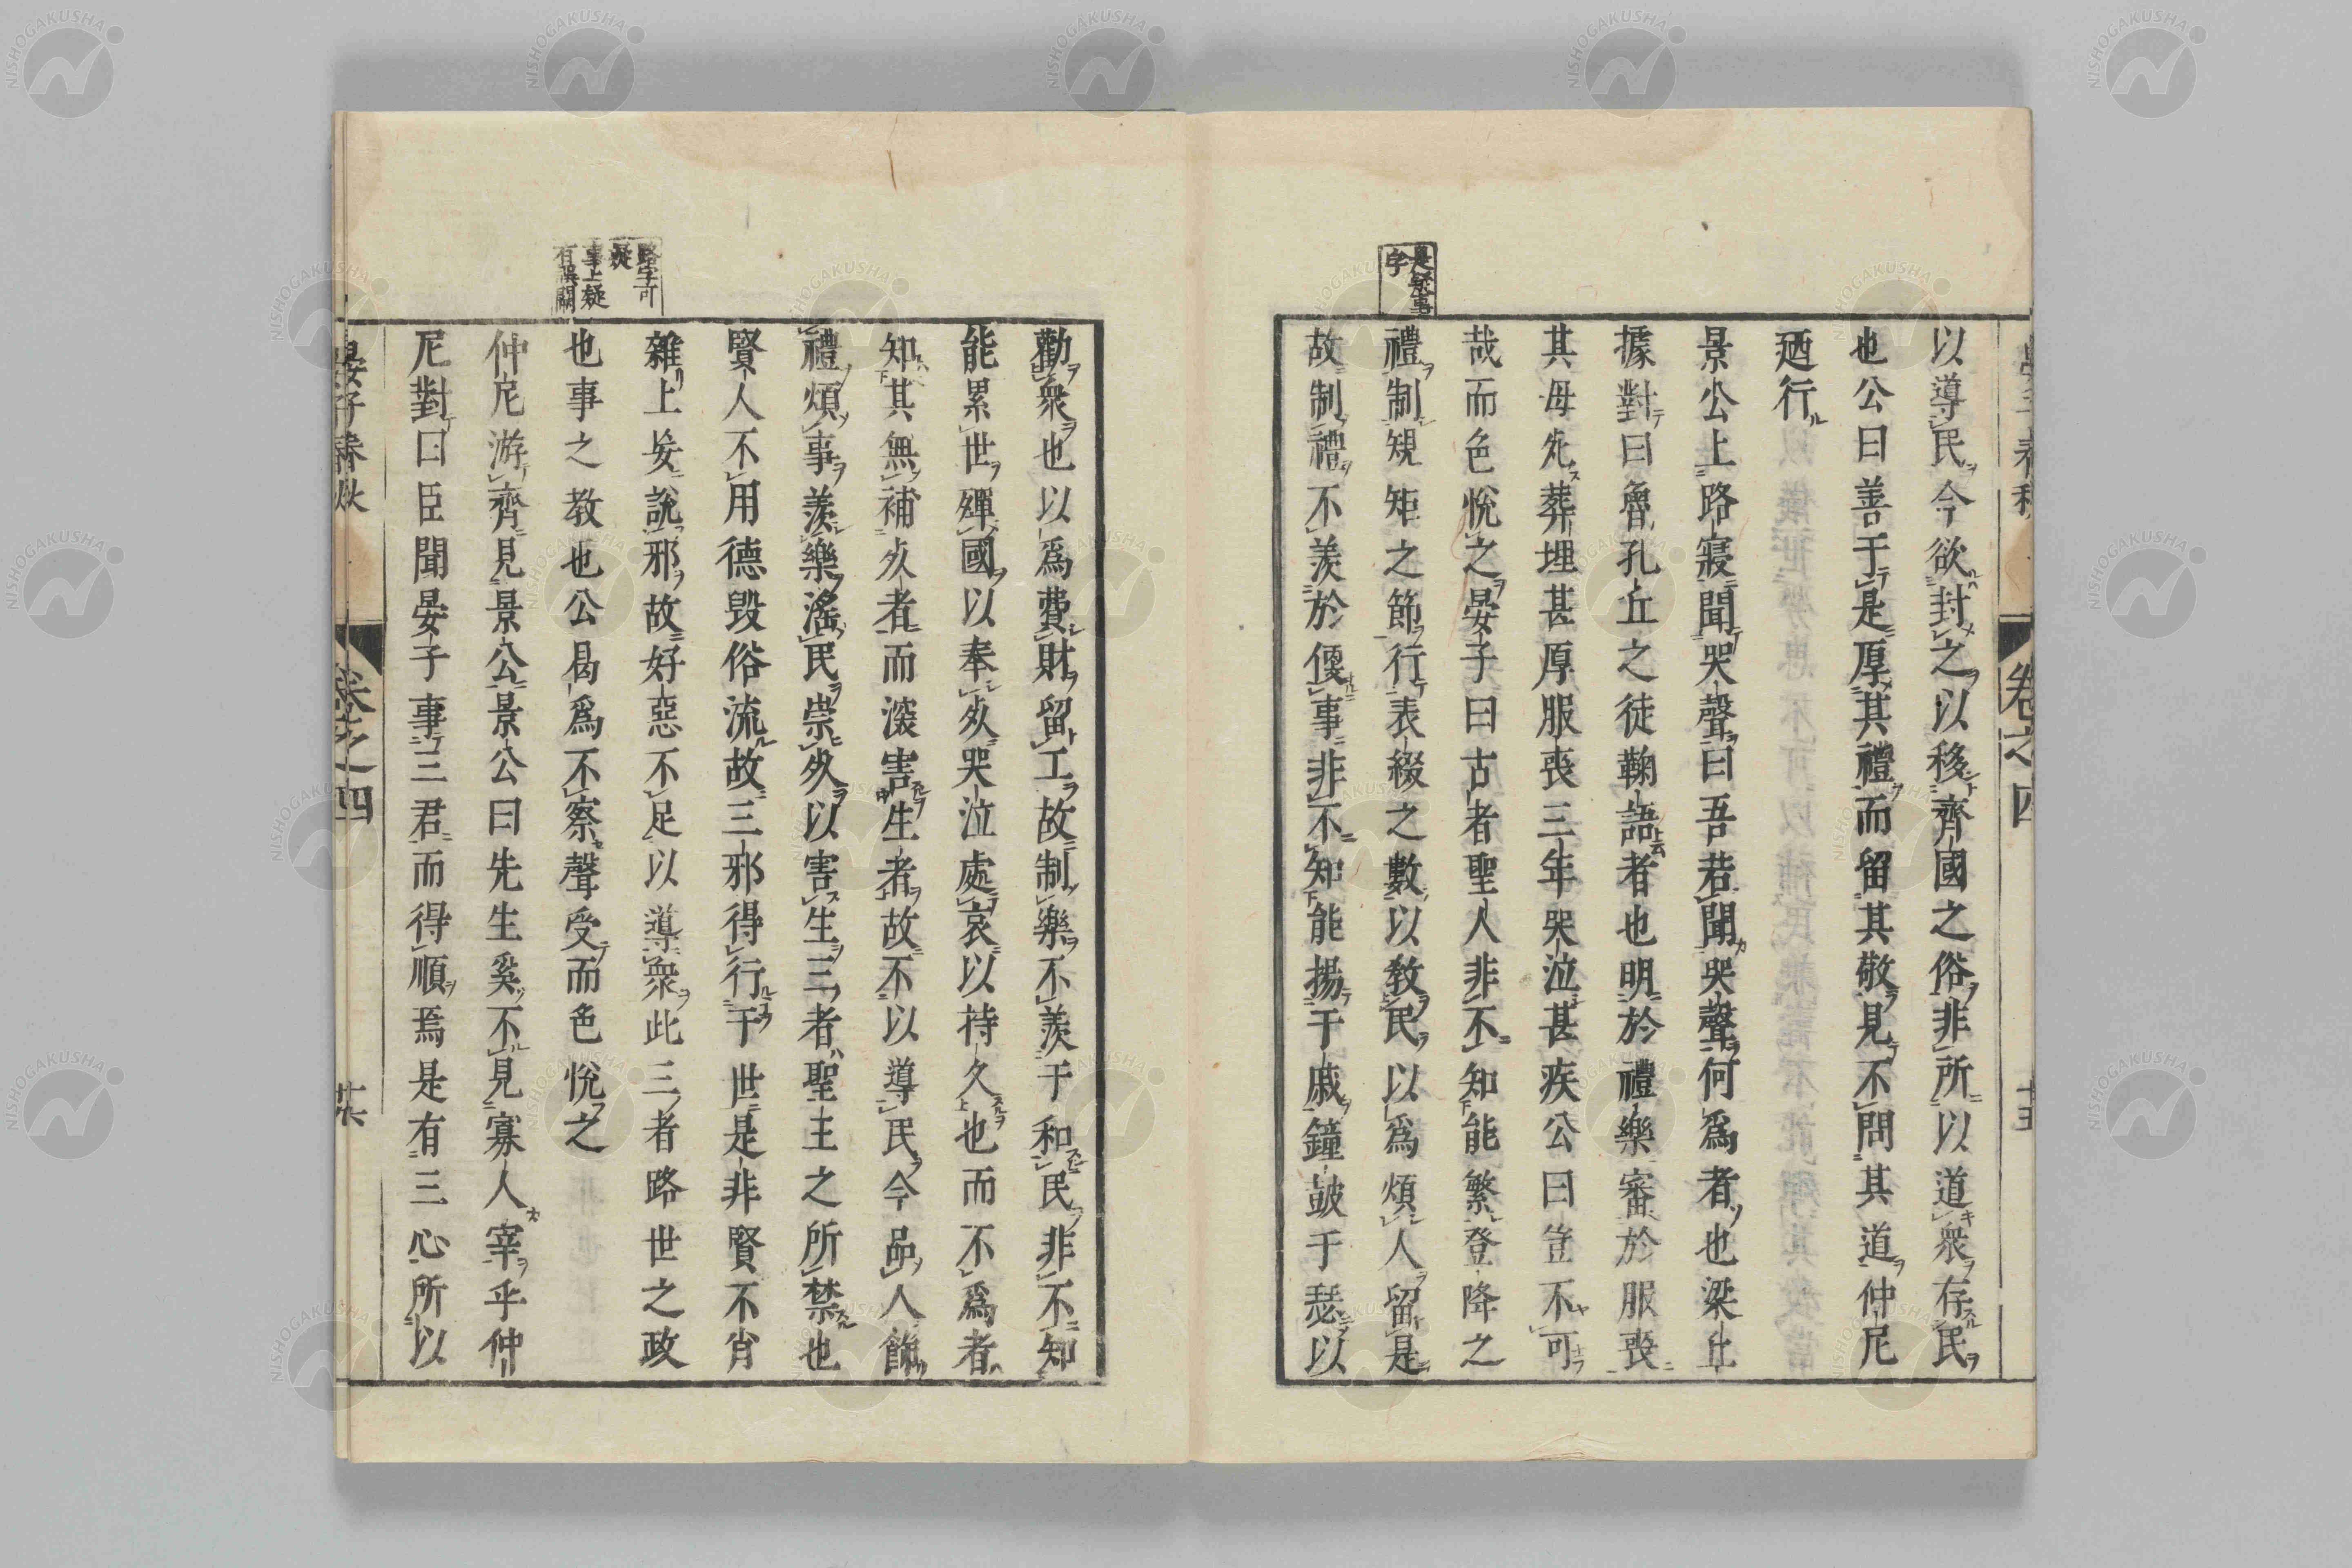 是疑事
字
以導民今欲封之以移齊國之俗非所以道衆存民
也公曰善于是厚其禮而留其敬見不問其道仲尼
廼行
景公上路寢聞哭聲曰吾若聞哭聲何爲者也梁丘
據對曰魯孔丘之徒鞠語者也明於禮樂審於服喪
其母死葬埋甚厚服喪三年哭泣甚疾公曰豈不可
哉而色悅之晏子曰古者聖人非不知能繁登降之
禮制規矩之節行表綴之數以敎民以爲煩人留是
故制禮不羨於便事非不知能揚干戚鐘鼓于瑟以
卷之四
路字可
疑
事上疑
有誤闕
勸衆也以爲費財留工故制樂不羨于和民非不知
能累世殫國以奉死哭泣處哀以持久也而不爲者
知其無補死者而深害生者故不以導民今品人飾
禮煩事羨樂滛民崇死以害生三者聖王之所禁也
賢人不用德毀俗流故三邪得行于世是非賢不肖
雜上妄說邪故好惡不足以導衆此三者路世之政
也事之教也公曷爲不察聲受而色悅之
仲尼游齊見景公景公曰先生奚不見寡人宰乎仲
尼對曰臣聞晏子事三君而得順焉是有三心所以
晏子春秋
卷之四
NISHOGAKUSHA